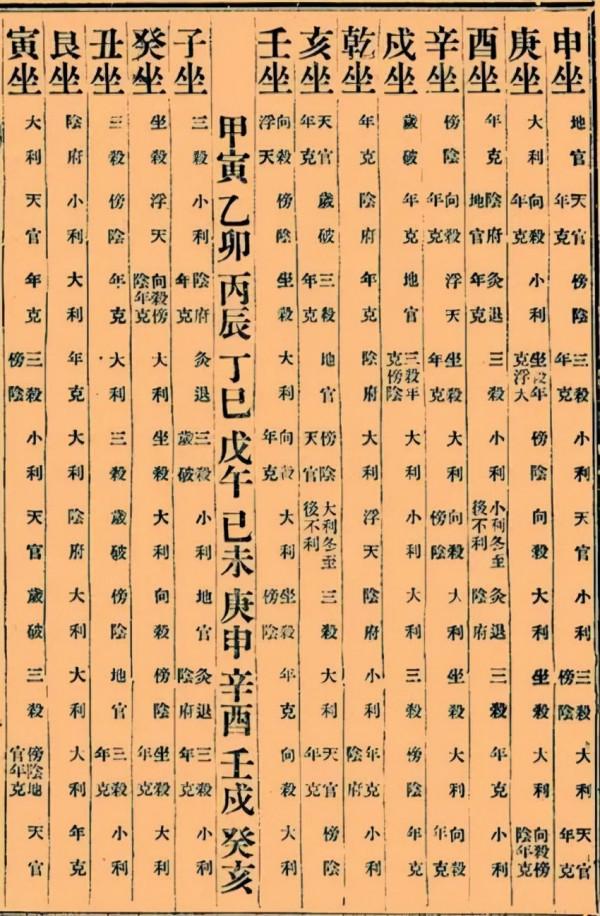 申坐 地官 天官年克 傍陰 三殺年克 小利 天官 小利 三殺傍陰 大利 天官年克
庚坐 大利 向殺年克 小利 坐殺年克浮大 傍陰 向殺 大利 坐殺 大利 向殺傍陰年克
酉坐 年克 陰府地官 灸退年克 三殺 小利 小利冬至後不利 灸退陰府 三殺 年克 小利
辛坐 傍陰 向殺年克 浮天 坐殺年克 大利 向殺傍陰 大利 坐殺 大利 向殺年克
戌坐 歲破 年克 地官 三殺年克傍陰 大利 小利 大利 三殺 傍陰 大利
乾坐 年克 陰府 年克 陰府 大利 浮天 陰府 小利 年克陰府 小利
亥坐 天官年克 歲破 三殺年克 地官 傍陰天官 大利冬至後不利 三殺 大利 天官年克 傍陰
壬坐 向殺浮天 傍陰 坐殺 大利 向殺年克 大利 坐殺傍陰 年克 向殺 大利
甲寅 乙卯 丙辰 丁巳 戊午 己未 庚申 辛酉 壬戌 癸亥
子坐 三殺 小利 陰府年克 灸退 三殺歲破 小利 地官 灸退陰府 三殺年克 小利
癸坐 坐殺 浮天 向殺傍陰年克 大利 坐殺 大利 向殺 傍陰 坐殺年克 大利
丑坐 三殺 傍陰 年克 大利 三殺 歲破 傍陰 地官 三殺年克 小利
艮坐 陰府 小利 大利 年克 大利 陰府 大利 大利 大利 年克
寅坐 大利 天官 年克 三殺傍陰 小利 天官 歲破 三殺 傍陰地官年克 天官